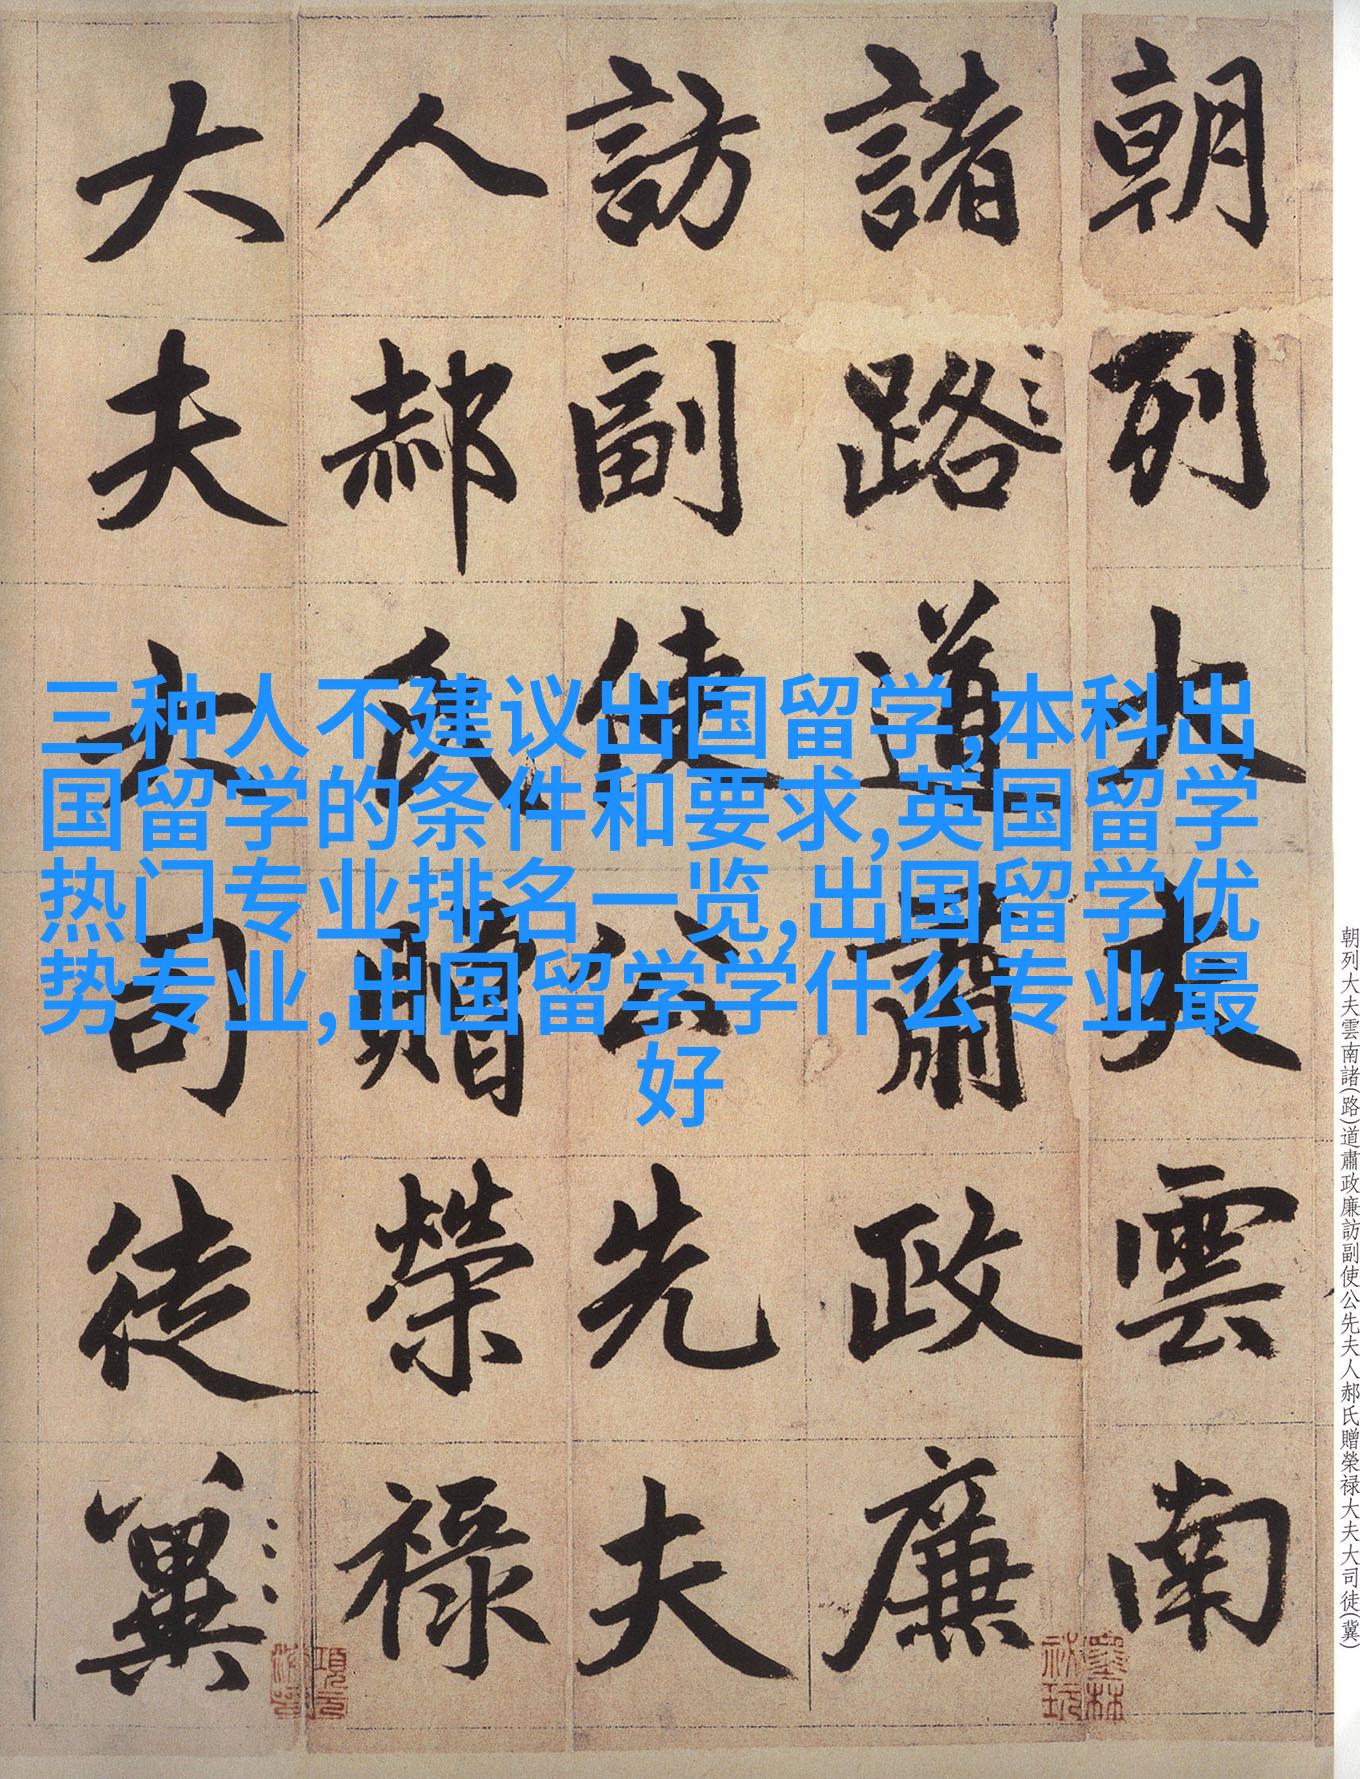 朝列大夫雲南
諸路道肅政廉
訪副使公先夫
人郝氏贈榮祿
大夫大司徒冀
三种人不建议出国留学,本科出
国留学的条件和要求,英国留学
热门专业排名一览,出国留学优
势专业,出国留学学什么专业最
好
朝列大夫雲南諸(路)道肅政廉訪副使公先夫人郝氏贈榮禄大夫大司徒(冀)
墨林
祕玩
項元
汴印